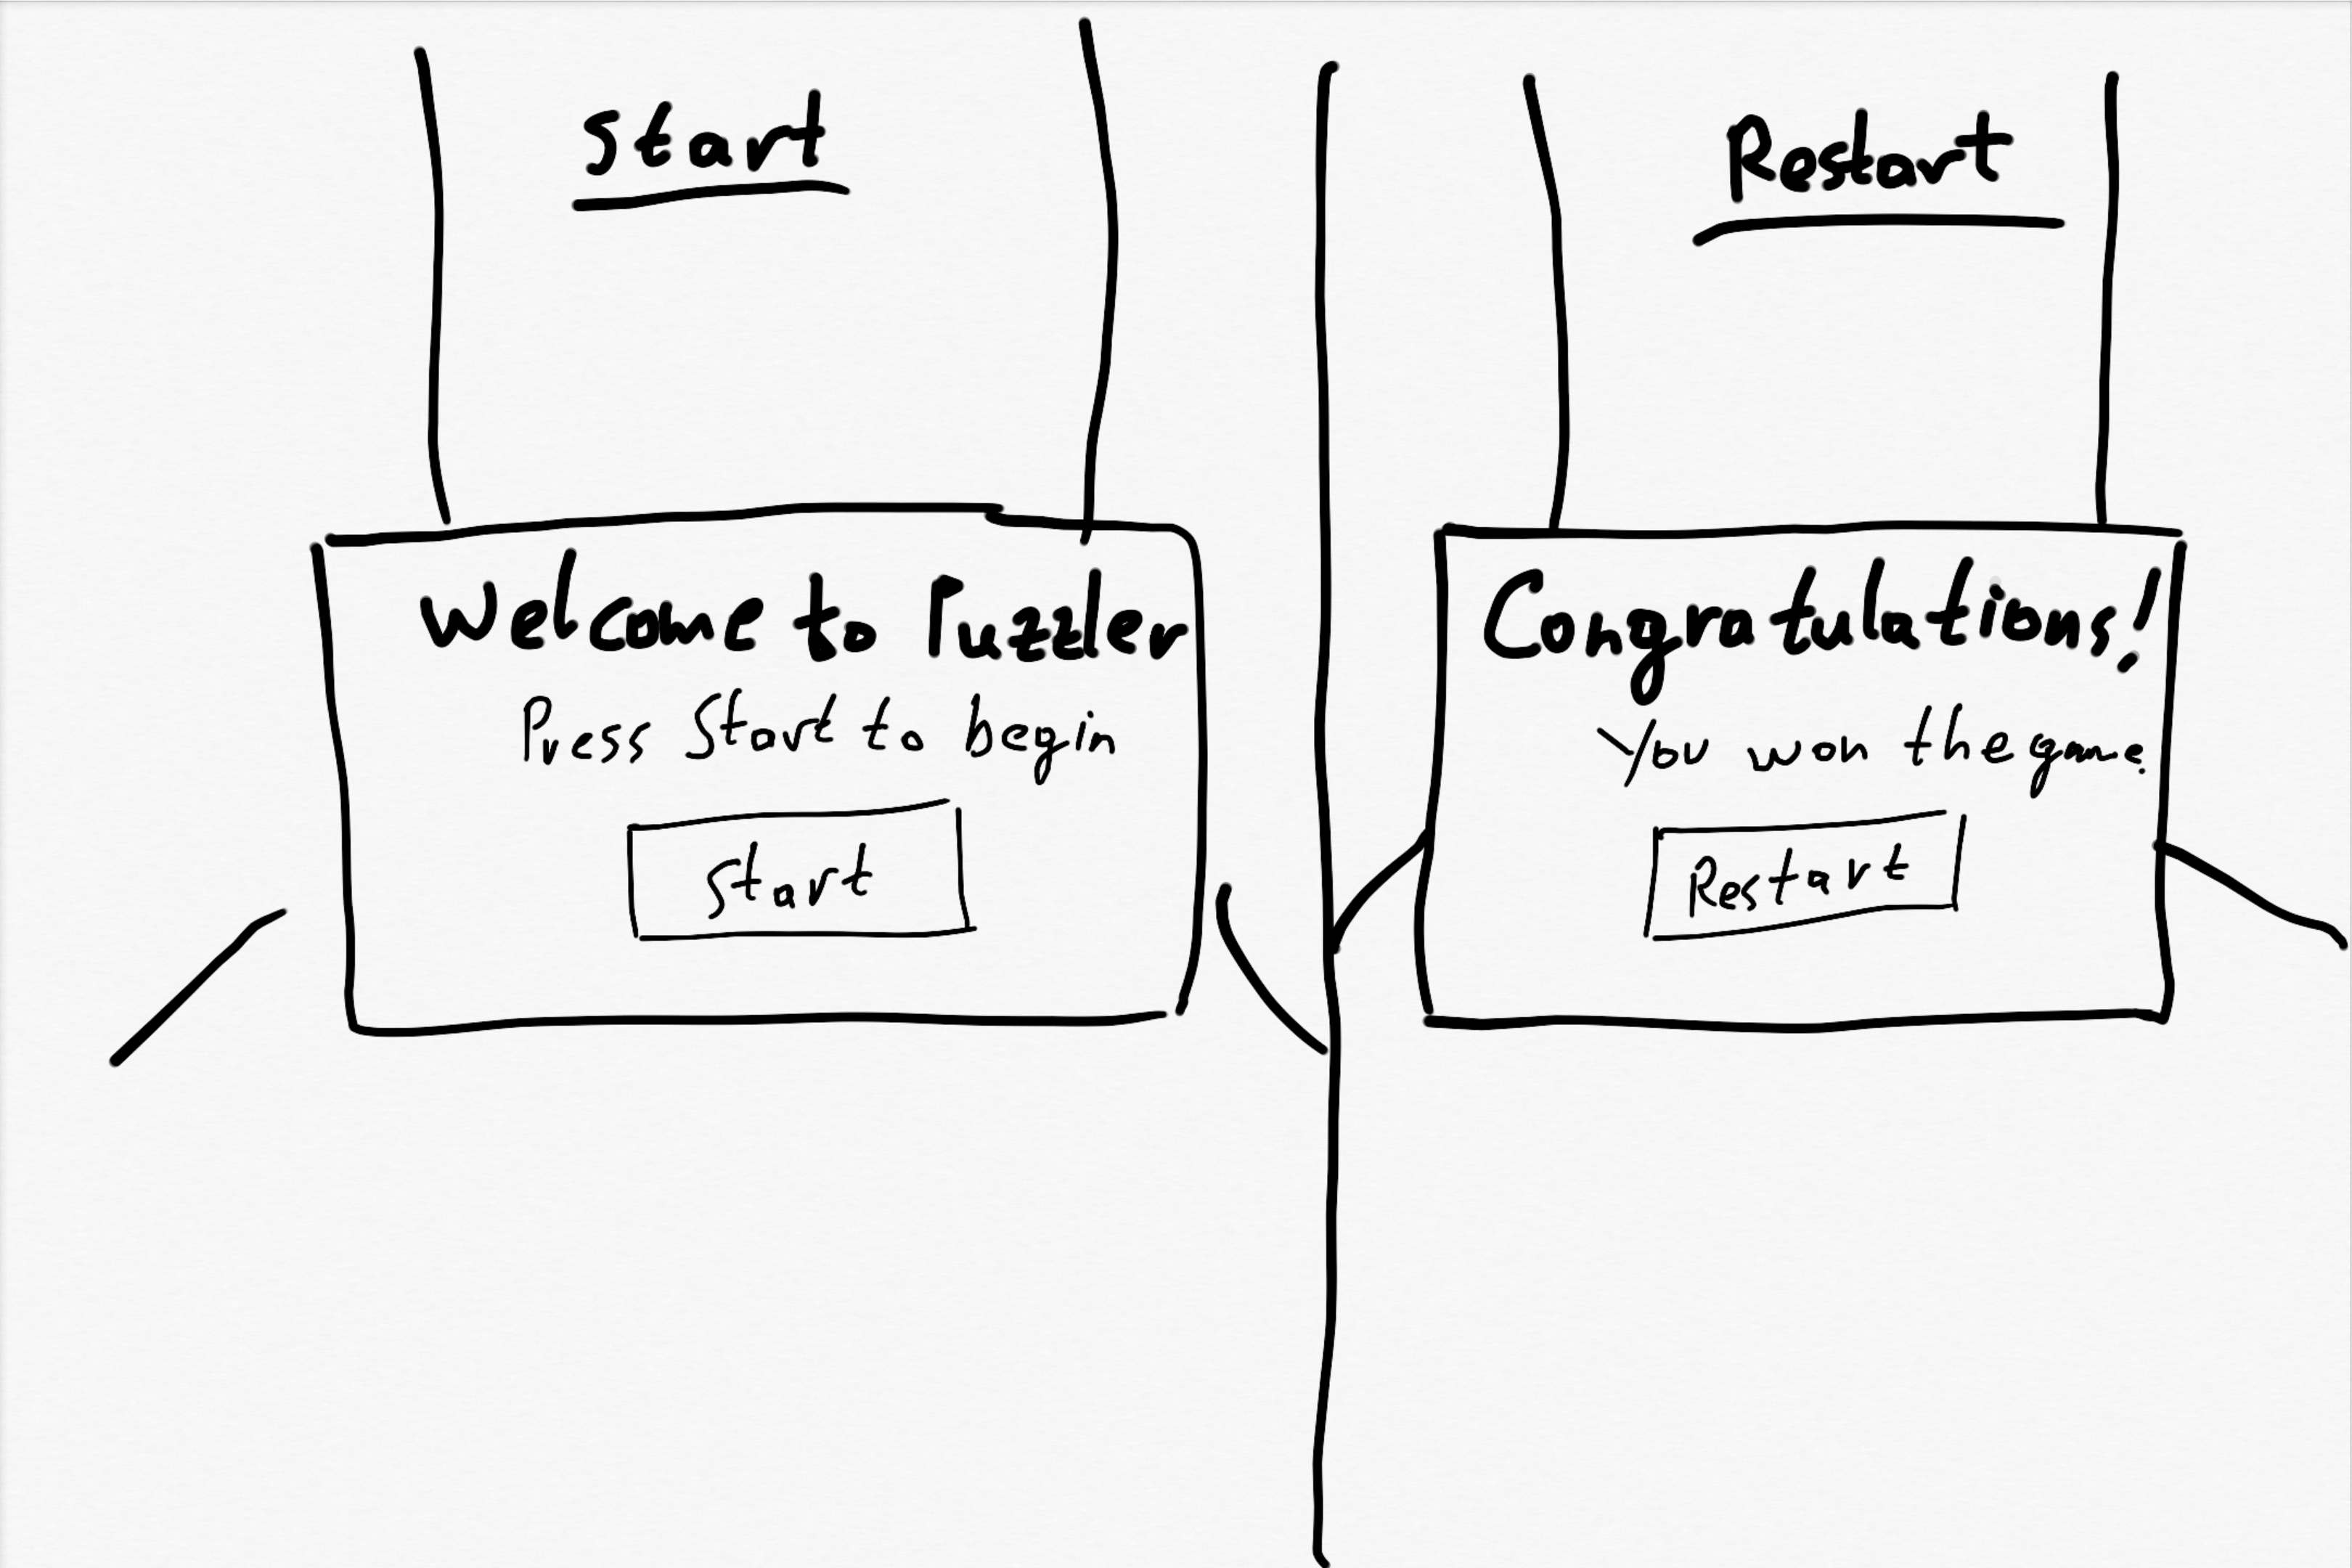 Start
Welcome to Puzzler
Press Start to begin
Start
Restart
Congratulations!
You won the game.
Restart